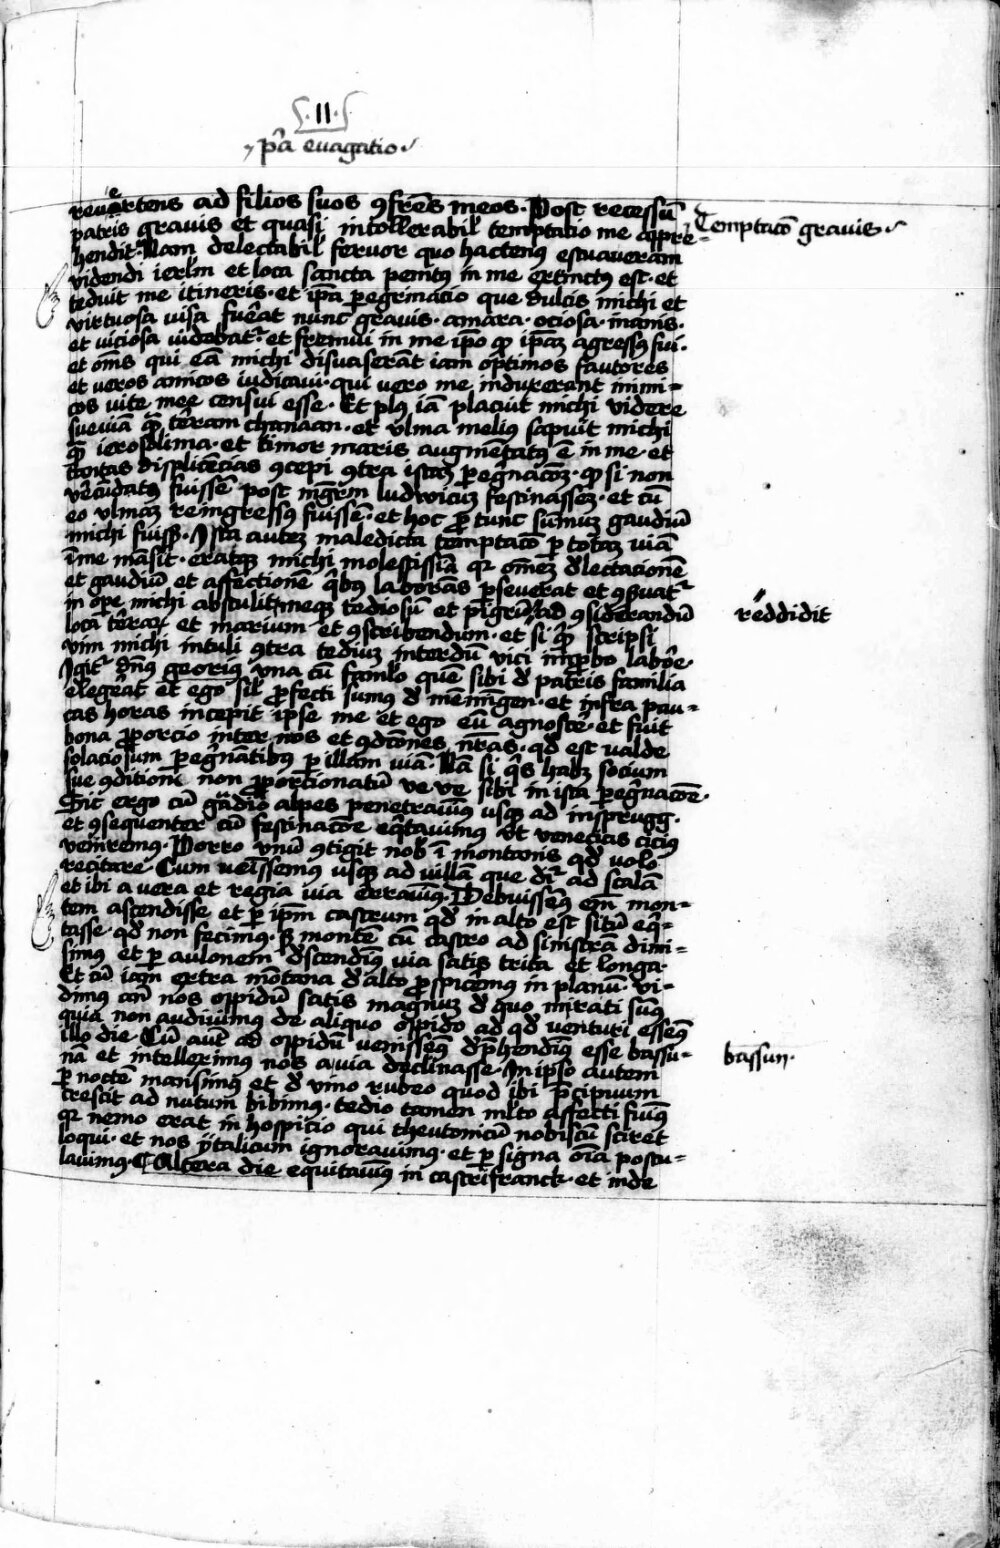 ·II·
p̄a evagatio
revertens ad filios suos ꝯfrēs meos · Post recessū
patris gravis et quasi intollerabil̄ temptatio me appre-
hendit · Nam delectabil̄ fervor quo hactenus estuaveram
videndi ierl̄m et loca sancta penitꝰ in me extinctꝰ est · et
teduit me itineris · et ip̄a ꝑegrinacio que dulcis michi et
virtuosa visa fuerat nunc gravis · amara · ociosa · inanis ·
et viciosa videbat᷑ · et fremui in me ip̄o ꝙ ip̄aꝫ agressꝰ fui ·
et om̄s qui eā michi disuaserāt iam optimos fautores
et veros amicos iudicavi · qui vero me induxerant inimi-
cos vite mee censui esse · Et plꝰ iā placuit michi videre
sueviā quā terram chanaan · et vlma meliꝰ sapuit michi
quā ierosolima · et timor maris augmētatꝰ ē in me · et
tantas displicēcias ꝯcepi ꝯtra istaꝫ ꝑegnacōꝫ · ꝙ si non
verecūdatꝰ fuissē post mgr̄m ludwicuꝫ festinasseꝫ · et cū
eo vlmaꝫ reingressꝰ fuissē · et hoc ꝓ tunc sūmuꝫ gaudiū
michi fuisset · Ista auteꝫ maledicta temptacō ꝑ totaꝫ viā
ī me māsit · eratqꝫ michi molestissīa qꝛ om̄eꝫ delectationē
et gaudiū et affectionē qͥbus laborās ꝑseverat et ꝯsuat᷑
in oꝑe michi abstulit meqꝫ tediosū et pigrū ad ꝯsiderandū
loca terraꝝ et marium · et ꝯscribendum · et si quā scripsi
vim michi intuli ꝯtra tediuꝫ interdū vici improbo labore ·
Igit᷑ dn̄s georiꝰ vna cū famlo quē sibi de patris familia
elegerat et ego sil̄ ꝓfecti sumus de mēmīgen · et infra pau-
cas horas incepit ipse me et ego eū agnoscere · et fuit
bona ꝓporcio inter nos et ꝯdcōnes nr̄as · qd̄ est valde
solaciosum ꝑegnātibus ꝑ illam viā · Nā si qͥs habꝫ socium
sue ꝯditioni non ꝓporcionatū ve ve sibi in ista ꝑegnacōe ·
Sic ergo cū gaudio alpes penetravimꝰ usqꝫ ad insprugg ·
et ꝯsequenter cū festinacōe eqͥtavimus vt venecias ciciꝰ
veniremꝰ · Porro vnū ꝯtigit nob̄ ī montanis qd̄ volo
recitare · Cum venissemus usqꝫ ad villā que dr̄ ad scalā
et ibi a vera et regia via erravimꝰ · Debuissemꝰ em̄ mon-
tem ascendisse et ꝑ ip̄m castrum qd̄ in alto est sitū eqͥ-
tasse · qd̄ non fecimꝰ · sꝫ montē cū castro ad sinistrā dimi-
simꝰ et ꝑ aulonem descendimꝰ via satis trita et longa ·
Et cū iam extra mōtana de alto ꝓspicemꝰ in planū · vi-
dimꝰ an̄ nos oppidū satis magnuꝫ de quo mirati sumꝰ
quia non audivimꝰ de aliquo oppido ad qd̄ venturi essemꝰ
illo die · Cū aut̄ ad oppidū venissemꝰ dep̄hendimꝰ esse bassū-
na et intelleximꝰ nos a via declinasse · In ipso autem
ꝑ noctē mansimꝰ et de vino rubeo quod ibi p̄cipuum
crescit ad nutum bibimꝰ · tedio tamen ml̄to affecti fuimꝰ
qꝛ nemo erat in hospicio qui theutonicū nobiscū sciret
loqui · et nos ytalicum ignoravimꝰ · et ꝑ signa oīa postu-
lavimꝰ · Altera die equitavimꝰ in castrifranck · et inde
Temptacō gravis
reddidit
bassun